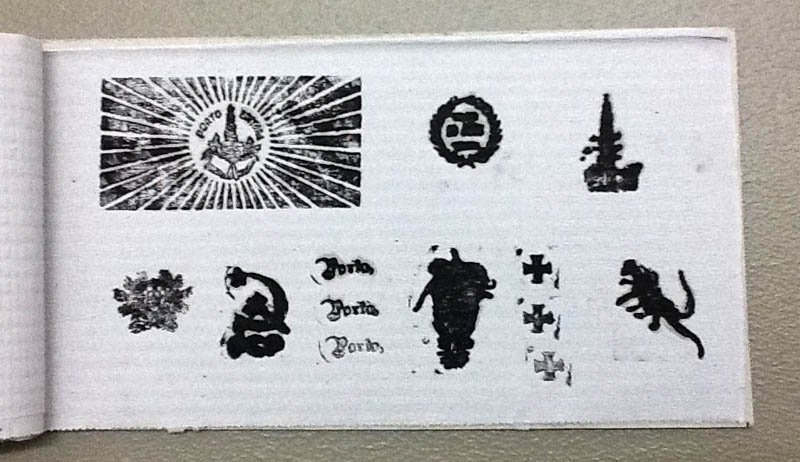 PORTO
Porto
Porto
Porto